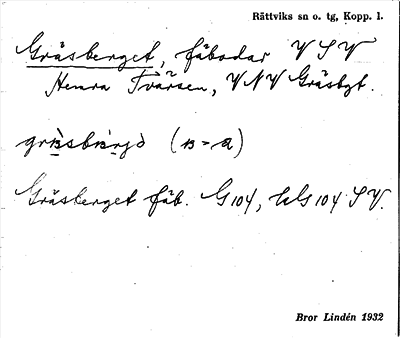 Rättviks sn o. tg, Kopp. l.
Gräsberget, fäbodar V S V
Hemra Tväråsen, V N V Gräsbgt.
(ʙ = a)
Gräsberget fäb. G 104, hls 104 S V.
Bror Lindén 1932